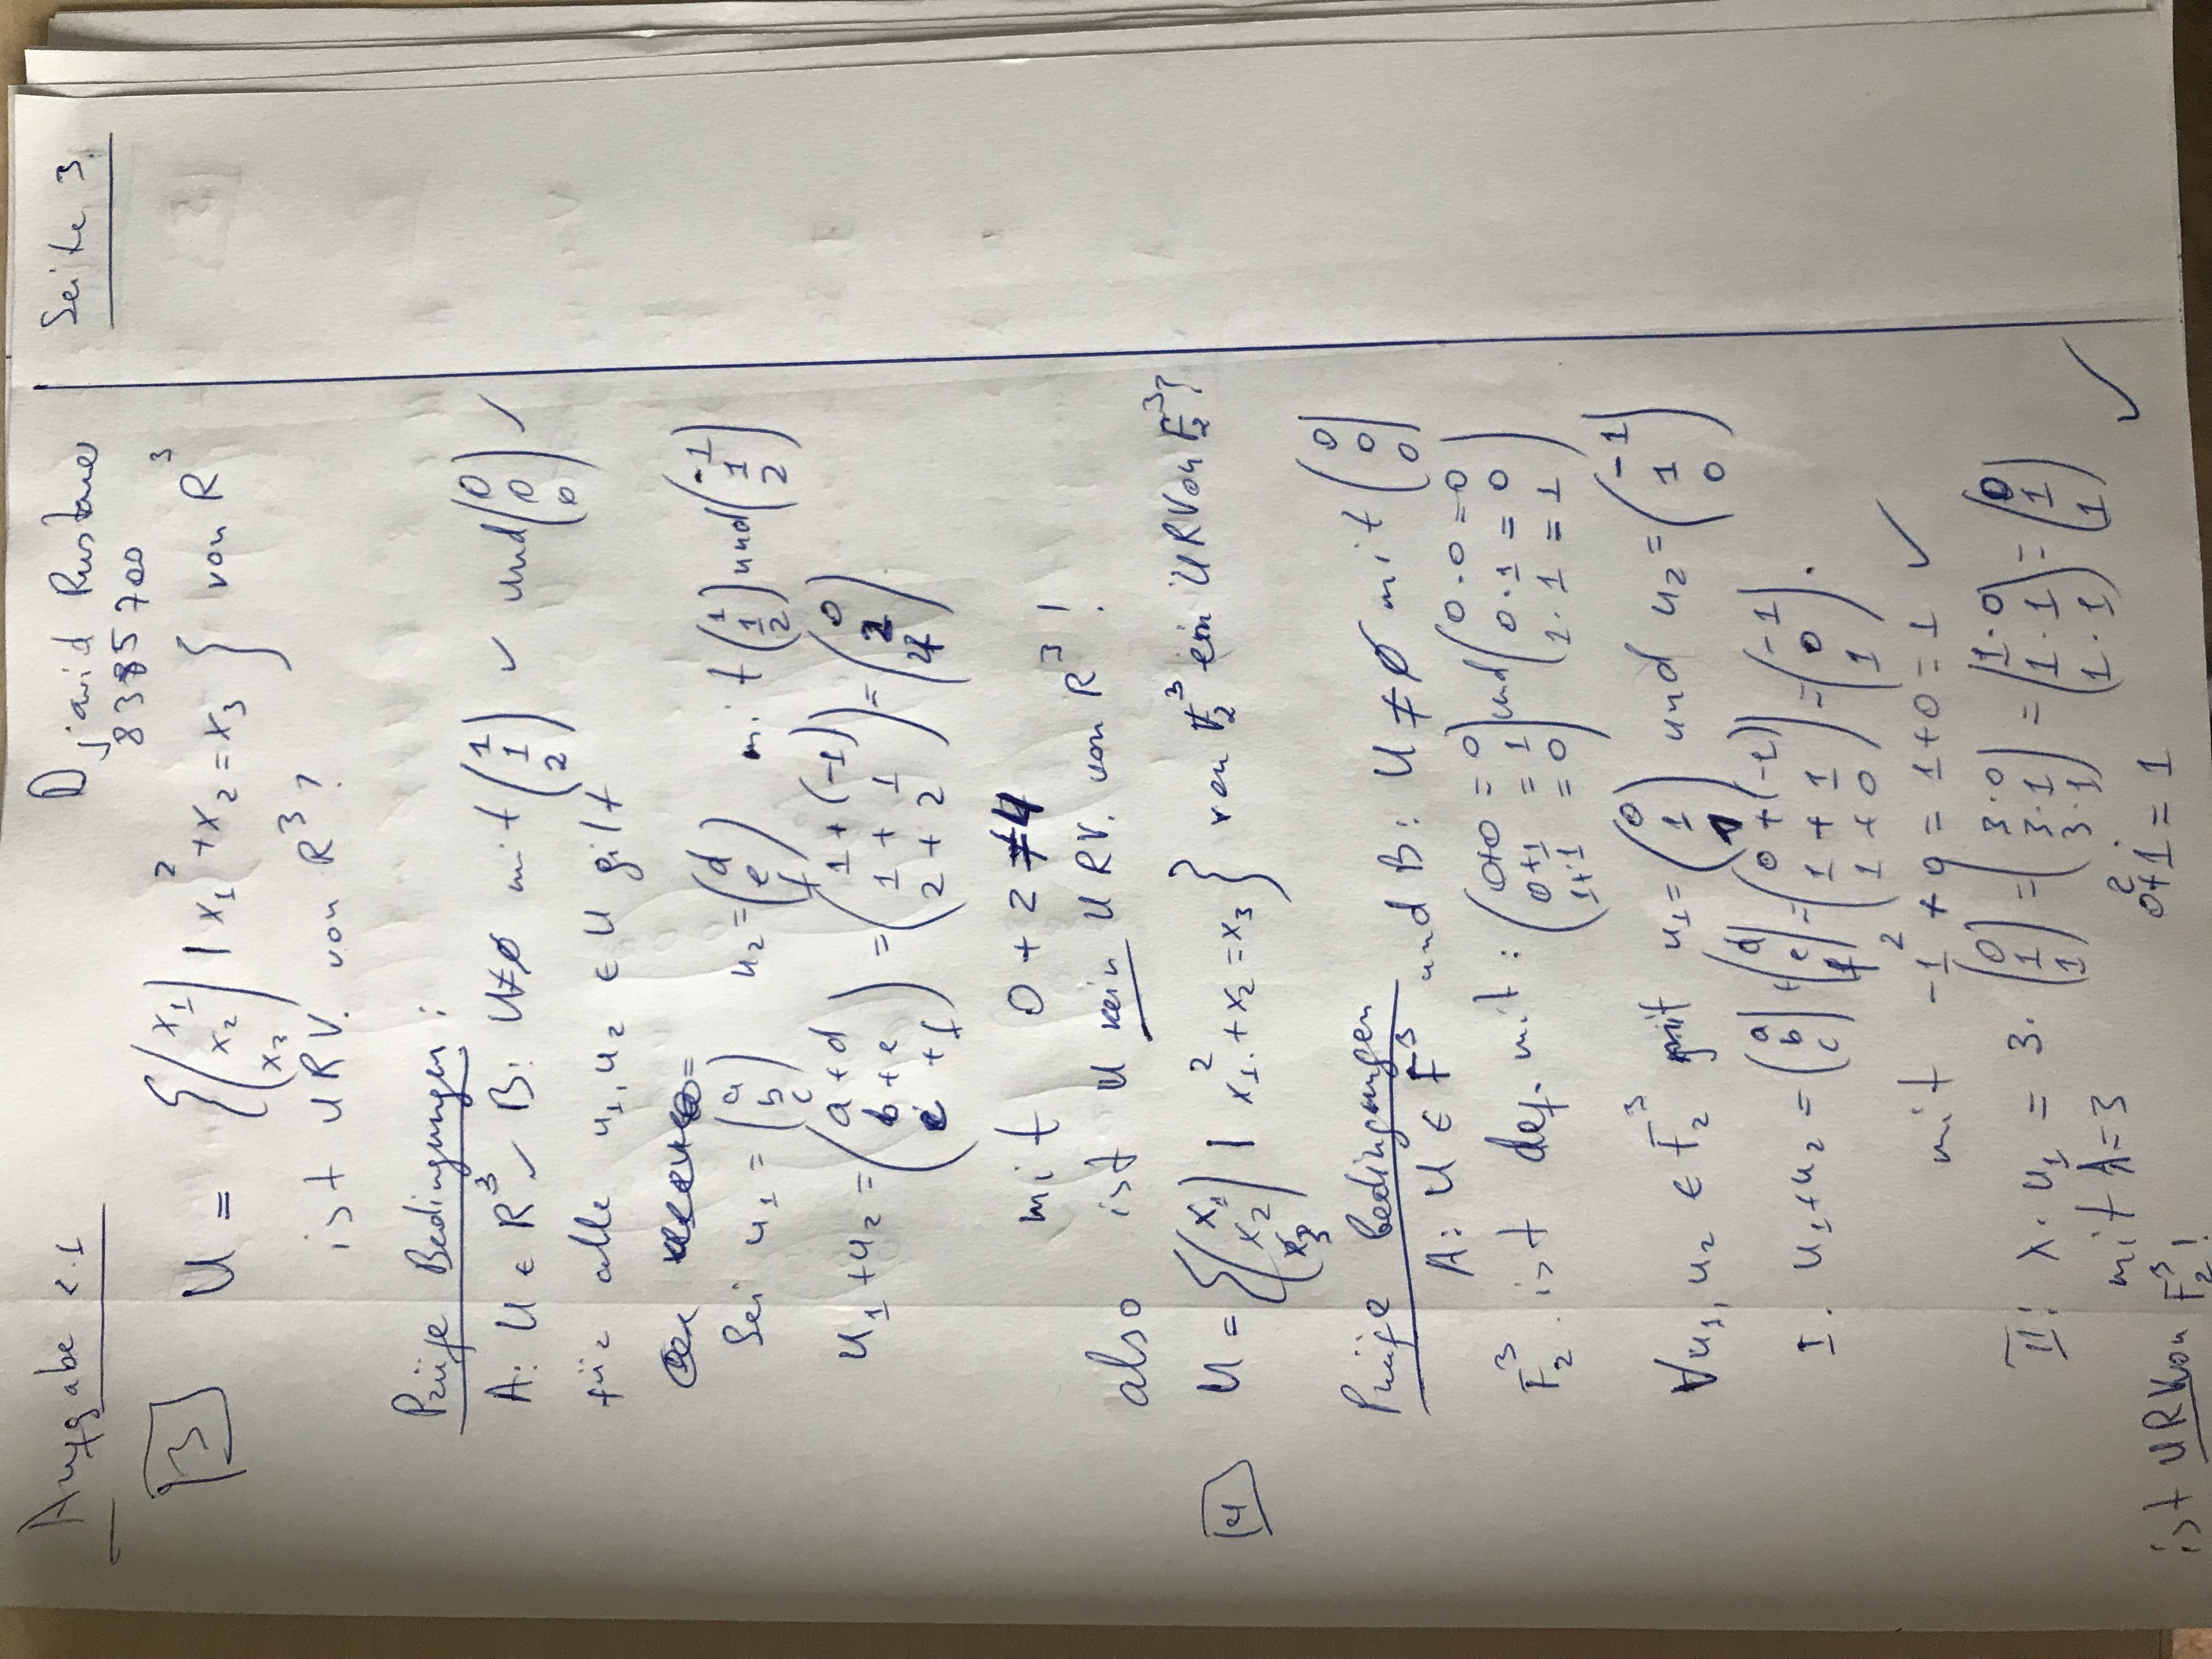 Aufgabe 2.1 Djavid Rustanov Seite 3
8385700
3 U = { (x₁ x₂ x₃) | x₁² + x₂ = x₃ } von R³
ist URV. von R³?
Prüfe Bedingungen:
A: U ∈ R³ ✓ B: U ≠ ∅ mit (1 1 2) ✓ und (0 0 0) ✓
für alle u₁, u₂ ∈ U gilt
Sei u₁ = (a b c) u₂ = (d e f) mit (1 1 2) und (-1 1 2)
u₁ + u₂ = (a + d b + e c + f) = (1 + (-1) 1 + 1 2 + 2) = (0 2 4)
mit 0 + 2 ≠ 4
also ist U kein URV. von R³!
4 U = { (x₁ x₂ x₃) | x₁² + x₂ = x₃ } von F₂³ ein URVon F₂³?
Prüfe bedingungen
A: U ∈ F³ und B: U ≠ ∅ mit (0 0 0)
F₂³ ist def. mit: (0+0 = 0 0+1 = 1 1+1 = 0) und (0·0 = 0 0·1 = 0 1·1 = 1)
∀u₁, u₂ ∈ F₂³ mit u₁ = (0 1 1) und u₂ = (-1 1 0)
I. u₁+u₂ = (a b c) + (d e f) = (0 + (-1) 1 + 1 1 + 0) = (-1 0 1).
mit -1² + 0 = 1+0 = 1 ✓
II: λ · u₁ = 3 · (0 1 1) = (3·0 3·1 3·1) = (1·0 1·1 1·1) = (0 1 1)
mit λ=3 0²+1 = 1 ✓
ist URVon F₂³!